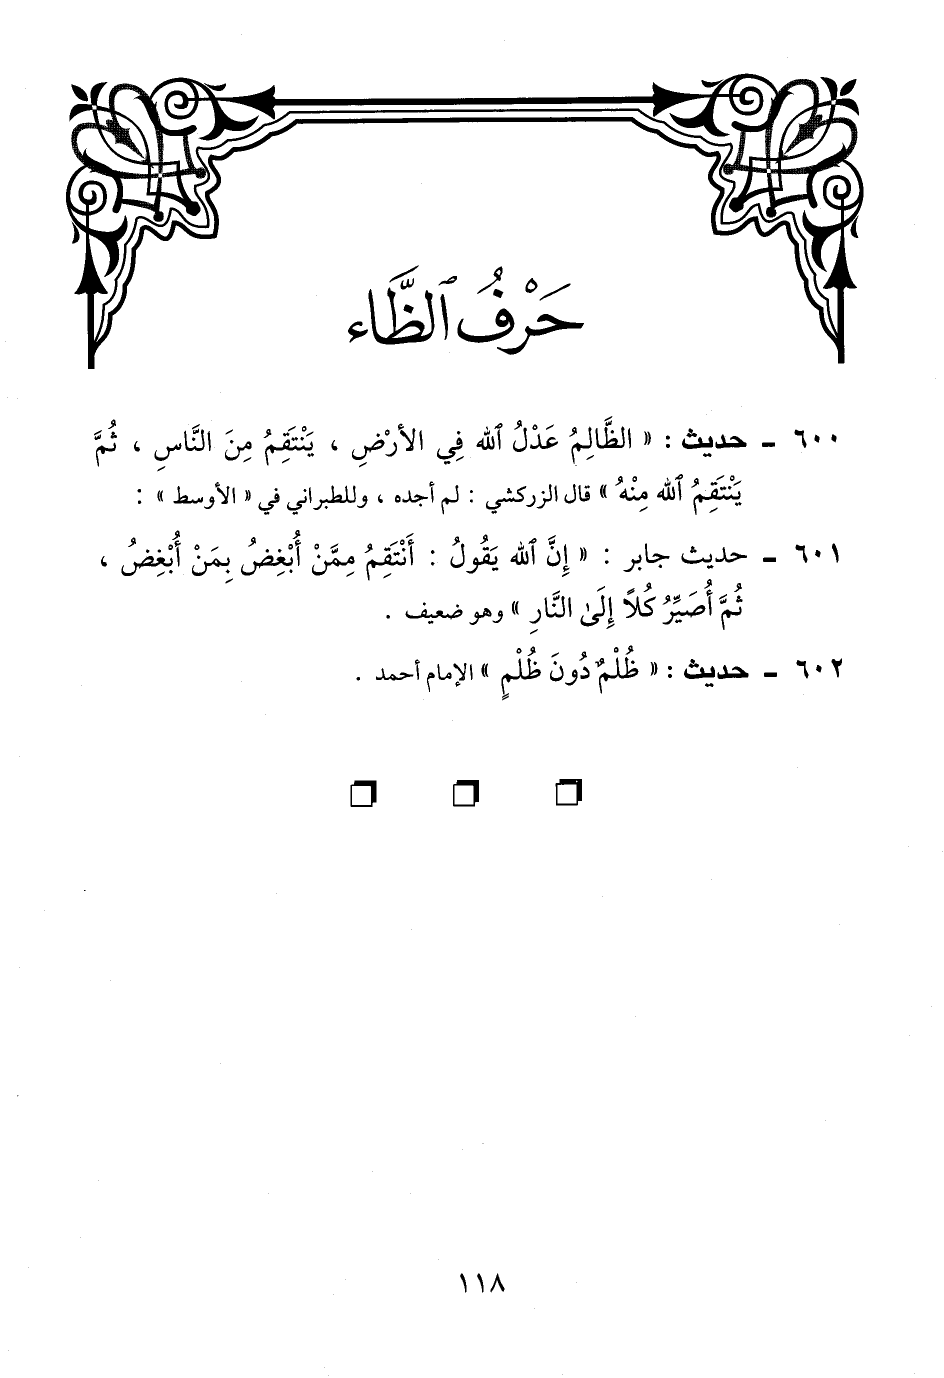 حَرْفُ ٱلظَّاء
٦٠٠ - حديث : « الظَّالِمُ عَدْلُ ٱلله فِي الأرْضِ ، يَنْتَقِمُ مِنَ النَّاسِ ، ثُمَّ
يَنْتَقِمُ ٱلله مِنْهُ » قال الزركشي : لم أجده ، وللطبراني في « الأوسط » :
٦٠١ - حديث جابر : « إِنَّ ٱلله يَقُولُ : أَنْتَقِمُ مِمَّنْ أُبْغِضُ بِمَنْ أُبْغِضُ ،
ثُمَّ أُصَيِّرُ كُلاً إِلَىٰ النَّارِ » وهو ضعيف .
٦٠٢ - حديث : « ظُلْمٌ دُونَ ظُلْمٍ » الإمام أحمد .
١١٨